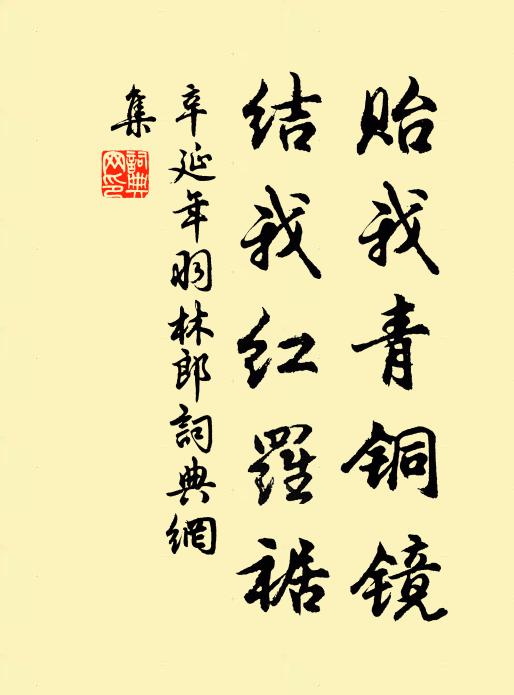 贻我青铜镜
结我红羅裾
辛延年羽林郎詞典網
集
詞典網印